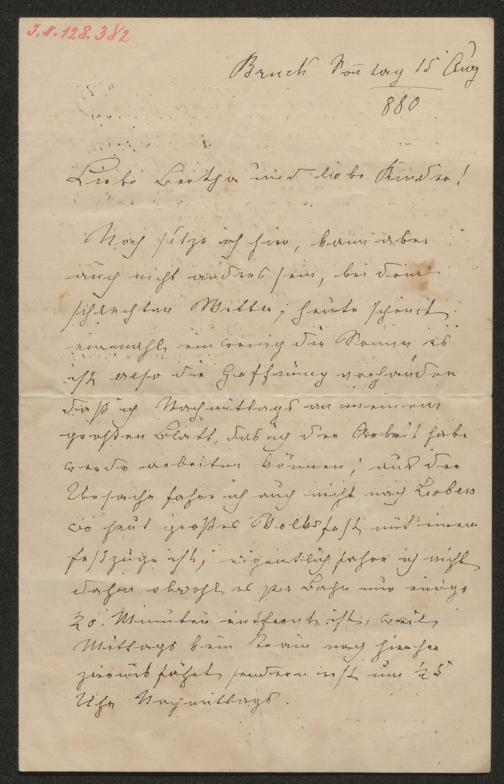 J.N. 128.382
Bruck Sonntag 15 Aug
880
Liebe Bertha und liebe Kinder!
Noch sitze ich hier, kann aber
auch nicht anders sein, bei dem
schlechten Wetter, heute scheint
einmahl ein wenig die Sonne es
ist also die Hoffnung vorhanden
daß ich Nachmittags an meinem
großen Blatt, das ich in der Arbeit habe
werde arbeiten können; aus der
Ursache fahre ich auch nicht nach Leoben
wo heut großes Volksfest mit einem
festzuge ist, eigentlich fahre ich nicht
dahin obwohl es per Bahn nur einige
20 Minuten entfernt ist, weil
Mittags kein Train nach hierher
zurück fährt sondern erst um ½ 5
Uhr Nachmittags.